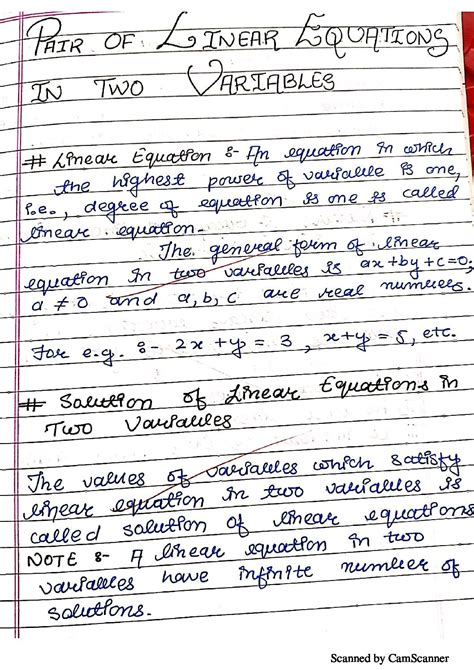 PAIR OF LINEAR EQUATIONS
IN TWO VARIABLES
# Linear Equation :- An equation in which
the highest power of variable is one,
i.e., degree of equation is one is called
linear equation.
The general form of linear
equation in two variables is ax+by+c=0;
a ≠ 0 and a, b, c are real numbers.
For e.g. :- 2x+y = 3 , x+y = 5, etc.
# Solution of Linear Equations in
Two Variables
The values of variables which satisfy
linear equation in two variables is
called solution of linear equations
NOTE :- A linear equation in two
variables have infinite number of
solutions.
Scanned by CamScanner